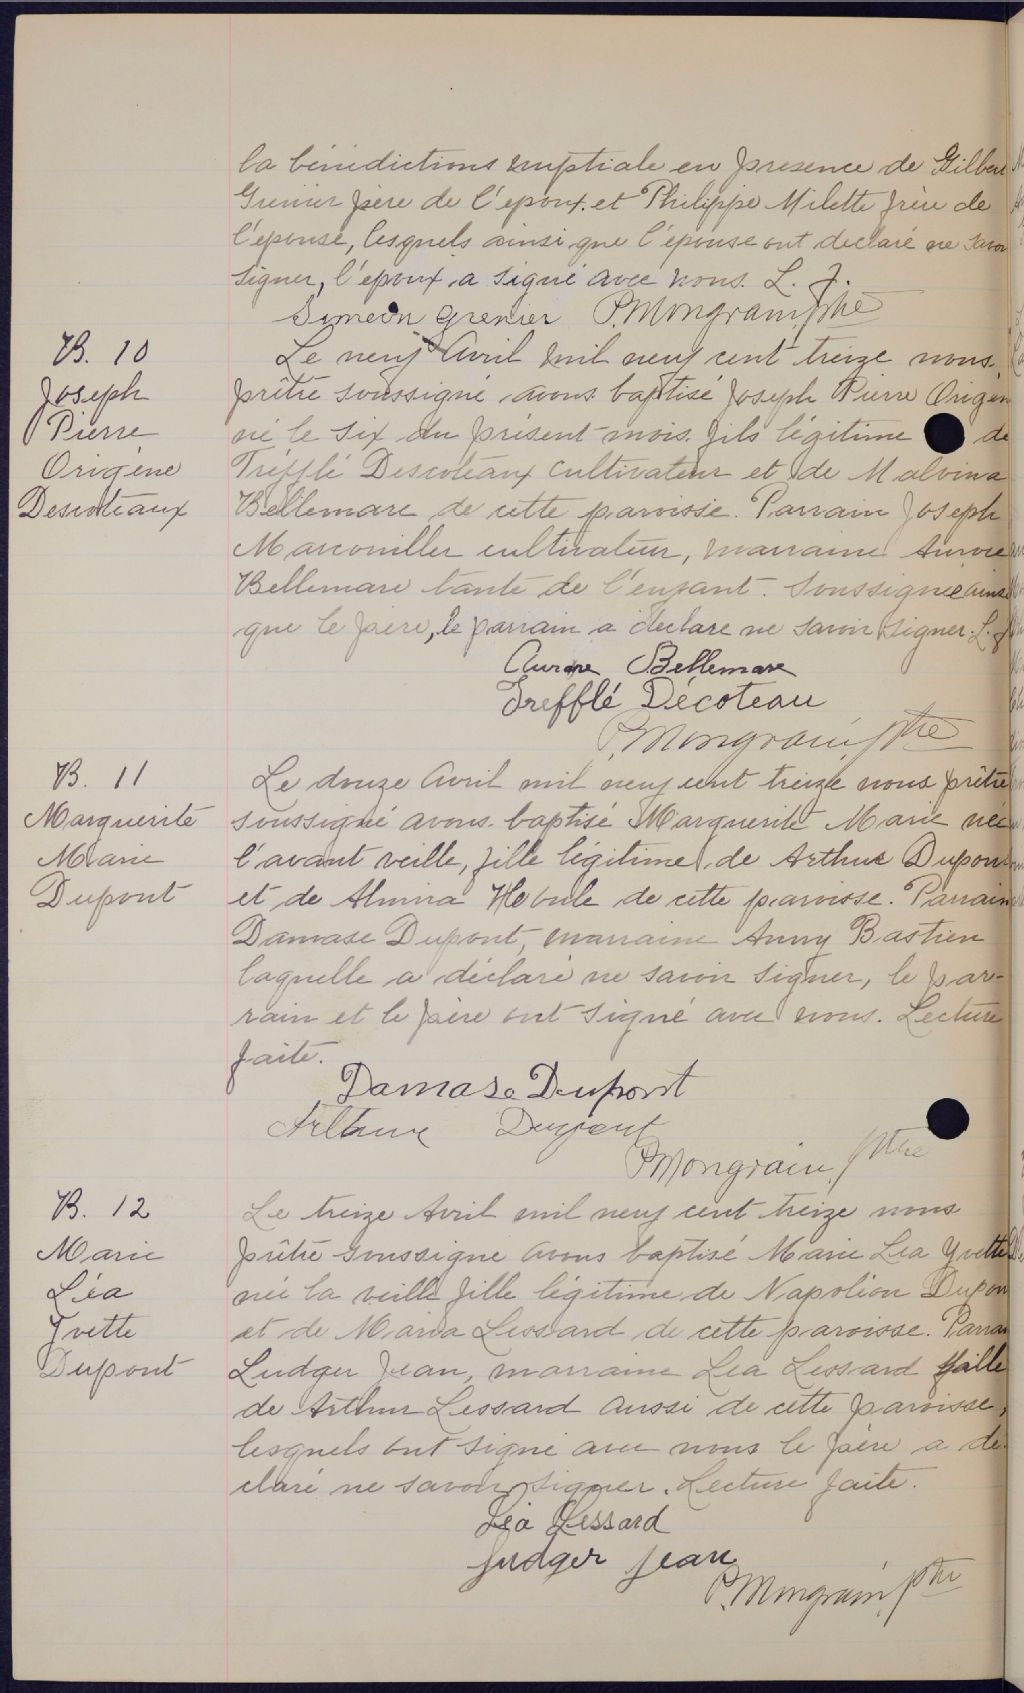 la bénédictions nuptiale en presence de Gilbert
Grenier père de l'epoux et Philippe Milette frère de
l'épouse, lesquels ainsi que l'épouse ont declaré ne savoir
signer, l'époux a signé avec nous. L. f.
Simeon Grenier P. Mongrain, ptre
B. 10
Joseph
Pierre
Origène
Descoteaux
Le neuf Avril mil neuf cent treize nous,
prêtre soussigné avons baptisé Joseph Pierre Origène
né le six du présent mois fils légitime de
Trefflé Descoteaux cultivateur et de Malvina
Bellemare de cette paroisse. Parrain Joseph
Marcouiller cultivateur, marraine Aurore
Bellemare tante de l'enfant. Soussignée ainsi
que le père, le parrain a declare ne savoir signer. L. f
Aurore Bellemare
Trefflé Décoteau
P. Mongrain, ptre
B. 11
Marguerite
Marie
Dupont
Le douze Avril mil neuf cent treize nous prêtre
soussigné avons baptisé Marguerite Marie née
l'avant veille, fille légitime de Arthur Dupont
et de Almina de cette paroisse. Parrain
Damase Dupont, marraine Anny Bastien
laquelle a déclaré ne savoir signer, le par-
rain et le père ont signé avec nous. Lecture
faite.
Damase Dupont
Arthur Dupont
P. Mongrain, ptre
B. 12
Marie
Léa
Yvette
Dupont
Le treize Avril mil neuf cent treize nous
prêtre soussigne avons baptisé Marie Lea Yvette
née la veille fille légitime de Napoléon Dupont
et de Maria Lessard de cette paroisse. Parrain
Ludger Jean, marraine Lea Lessard fille
de Arthur Lessard aussi de cette paroisse,
lesquels ont signé avec nous le père a dé-
claré ne savoir signer. Lecture faite.
Léa Lessard
Ludger Jean
P. Mongrain, ptre